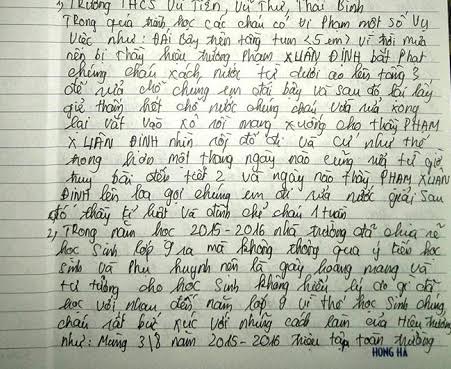 1) Trường THCS Vũ Tiến, Vũ Thư, Thái Bình
Trong quá trình học các cháu có vi phạm một số vụ
việc như: Đái bậy trên tầng tum (5 em) vì trời mưa
nên bị thầy hiệu trưởng Phạm XUÂN ĐỈNH bắt phạt
chúng cháu xách nước từ dưới ao lên tầng 3
để rửa chỗ chúng em đái bậy và sau đó lại lấy
giẻ thấm hết chỗ nước chúng cháu vừa rửa xong
lại vắt vào xô rồi mang xuống cho thầy PHẠM
XUÂN ĐỈNH nhìn rồi đổ đi và cứ như thế
trong hơn một tháng ngày nào cũng rửa từ giờ
truy bài đến tiết 2 và ngày nào thầy PHẠM XUÂN
ĐỈNH lên loa gọi chúng em đi rửa nước giải sau
đó thầy kỉ luật và đình chỉ cháu 1 tuần
2) Trong năm học 2015-2016 nhà trường đã chia rẽ
học sinh lớp 9 ra mà không thông qua ý kiến học
sinh và phụ huynh nên là gây hoang mang và
tư tưởng cho học sinh không hiểu lý do gì đã
học với nhau đến năm lớp 9 vì thế học sinh chúng
cháu rất bức xúc với những cách làm của Hiệu trưởng
như: Mùng 3/8 năm 2015-2016 triệu tập toàn trường
HỒNG HÀ